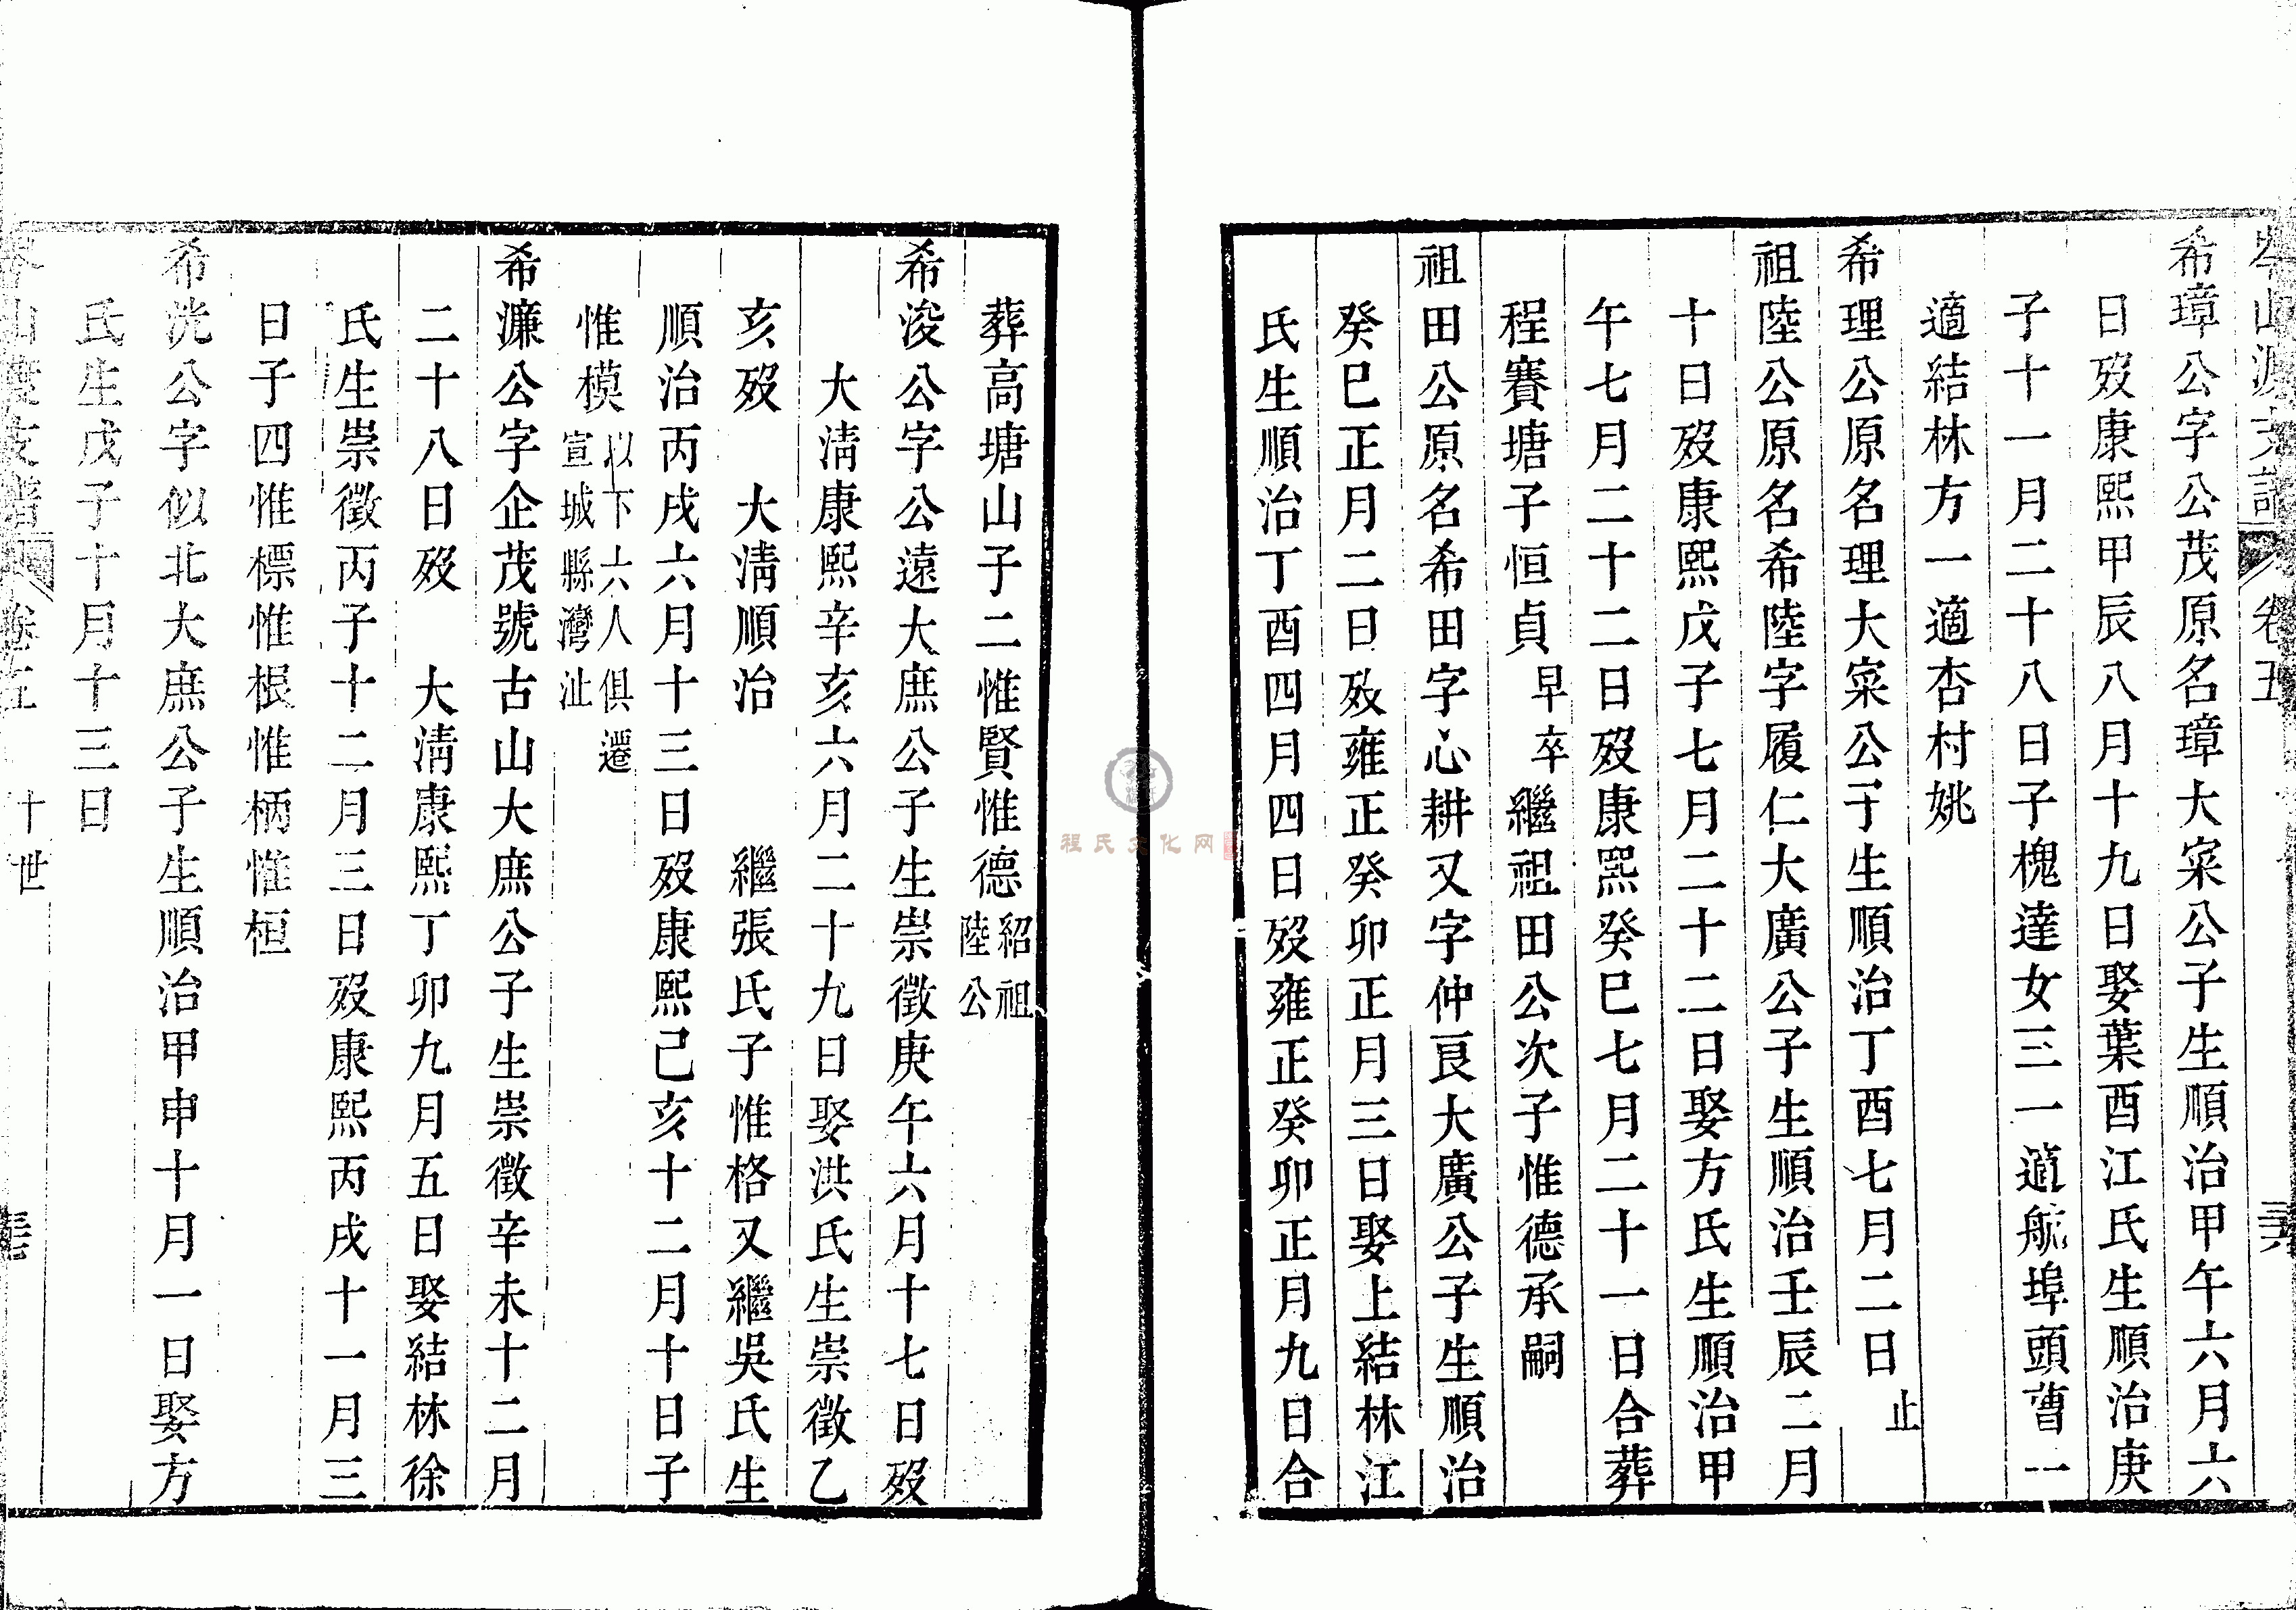 岑山渡支譜 卷五 三六
希璋公字公茂原名璋大寀公子生順治甲午六月六
日歿康熙甲辰八月十九日娶葉酉江氏生順治庚
子十一月二十八日子槐達女三一適航埠頭曹一
適結林方一適杏村姚
希理公原名理大寀公子生順治丁酉七月二日止
祖陸公原名希陸字履仁大廣公子生順治壬辰二月
十日歿康熙戊子七月二十二日娶方氏生順治甲
午七月二十二日歿康熙癸巳七月二十一日合葬
程賽塘子恒貞早卒繼祖田公次子惟德承嗣
祖田公原名希田字心耕又字仲良大廣公子生順治
癸巳正月二日歿雍正癸卯正月三日娶上結林江
氏生順治丁酉四月四日歿雍正癸卯正月九日合
葬高塘山子二惟賢惟德紹祖陸公
希浚公字公遠大庶公子生崇徵庚午六月十七日歿
大淸康熙辛亥六月二十九日娶洪氏生崇徵乙
亥歿 大淸順治 繼張氏子惟格又繼吳氏生
順治丙戌六月十三日歿康熙己亥十二月十日子
惟模以下六人俱遷宣城縣灣沚
希濂公字企茂號古山大庶公子生崇徵辛未十二月
二十八日歿 大淸康熙丁卯九月五日娶結林徐
氏生崇徵丙子十二月三日歿康熙丙戌十一月三
日子四惟標惟根惟柄惟桓
希洸公字似北大庶公子生順治甲申十月一日娶方
氏生戊子十月十三日
岑山渡支譜 卷五 十世 三七
程氏文化网